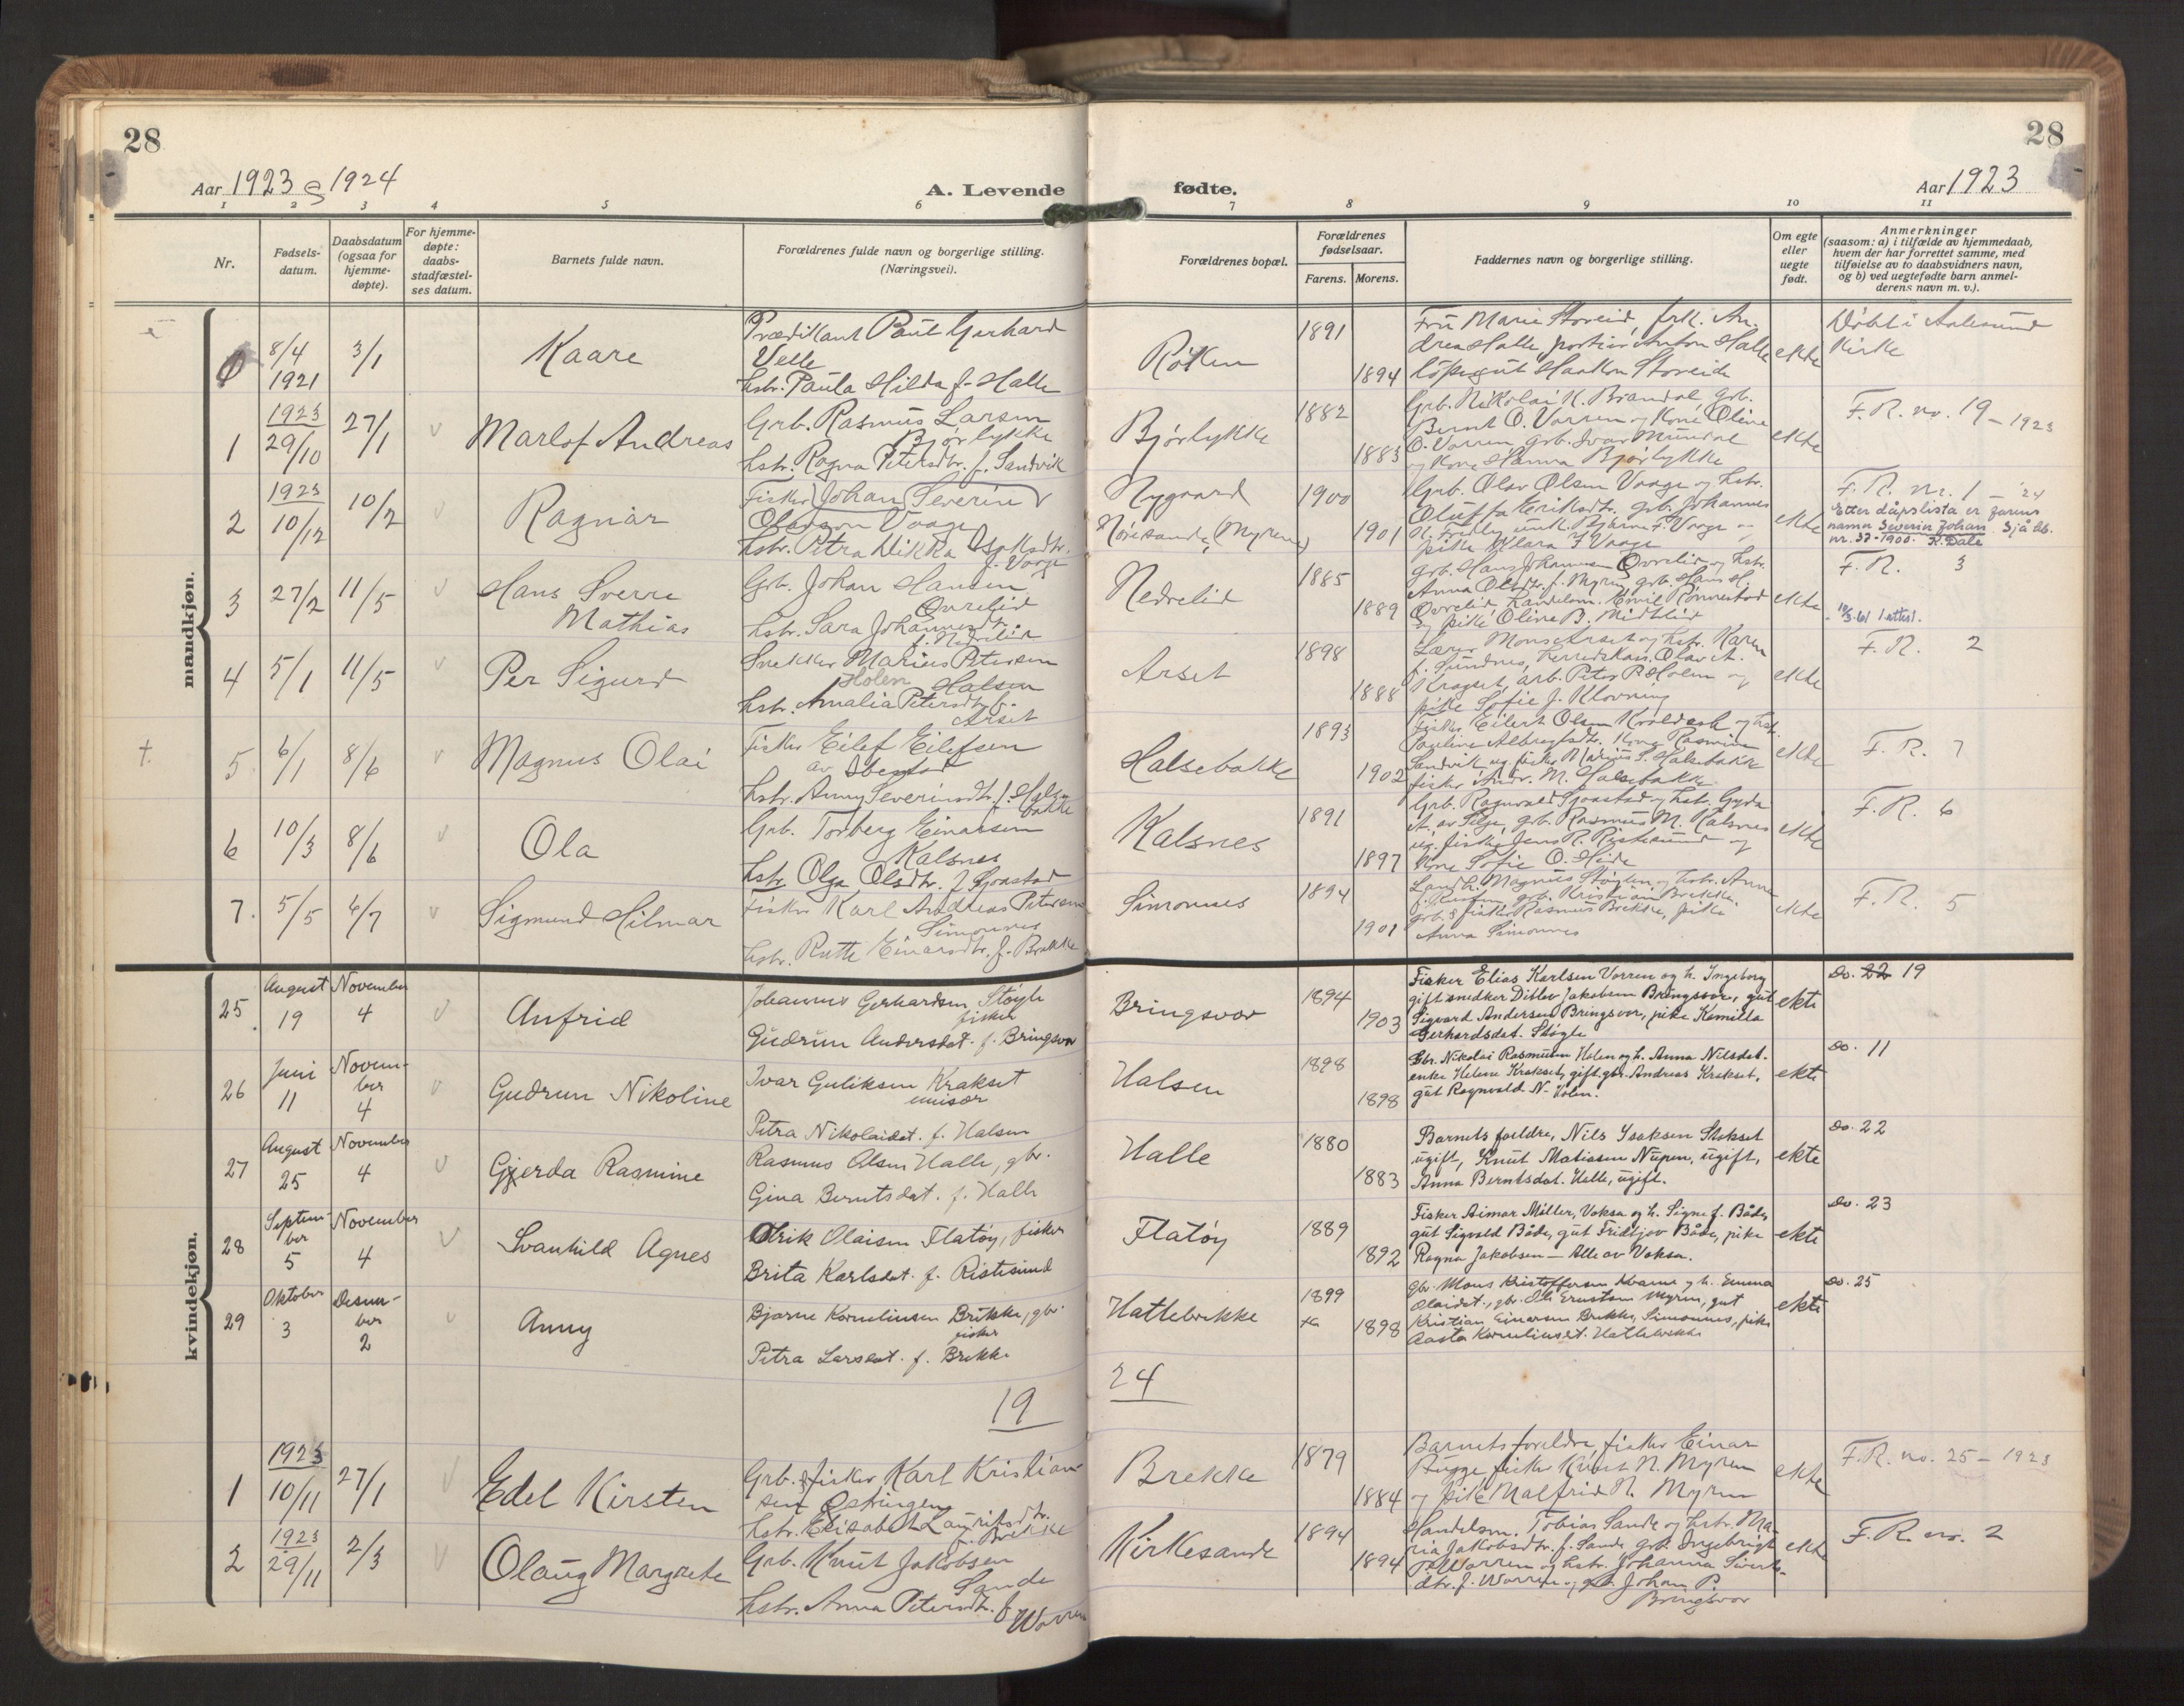 28
28
Aar 1923 og 1924
A. Levende
fødte.
Aar 1923
1 2 3 4 5 6 7 8 9 10 11
Nr.
Fødsels-
datum.
Daabsdatum
(ogsaa for
hjemme-
døpte).
For hjemme-
døpte:
daabs-
stadfæstel-
ses datum.
Barnets fulde navn.
Forældrenes fulde navn og borgerlige stilling.
(Næringsvei).
Forældrenes bopæl.
Forældrenes
fødselsaar.
Farens. Morens.
Faddernes navn og borgerlige stilling.
Om egte
eller
uegte
født.
Anmerkninger
(saasom: a) i tilfælde av hjemmedaab,
hvem der har forrettet samme, med
tilføielse av to daabsvidners navn,
og b) ved uegtefødte barn anmel-
derens navn m. v.).
mandkjøn.
8/4
1921
3/1
Kaare
Prædikant Paul Gerhard
Velle
hstr. Paula Hilda f. Halle
Røtken
1891
1894
Fru Marie Storeid, frk. An-
drea Halle, portier Anton Halle
løpegut Haakon Storeide
ekte
Døbt i Aalesund
Kirke
1
1923
29/10
27/1
v
Marlof Andreas
Grb. Rasmus Larsen
Bjørlykke
hstr. Ragna Petersdtr. f. Sandvik
Bjørlykke
1882
1883
Grb. Nikolai K. Brandal, grb.
Bernt O. Vorren og Kone Oline
O. Vorren, grb. Ivar Mundal
og kone Hanna Bjørlykke
ekte
F.R. no. 19 – 1923
2
1923
10/12
10/2
Ragnar
Fisker Johan Severin
Oladson Vaage
hstr. Petra Dikka Isaksdtr.
f. Vaage
Nygaard
Nøresande (Myren)
1900
1901
Grb. Olav Olsen Vaage og hstr.
Oluffa Eriksdtr. grb. Johannes
pike Klara F. Vaage
ekte
F.R. nr. 1 – '24
Etter dåpslista er farens
namn Severin Johan. Sjå kb.
nr. 37-1900. K. Dale
3
27/2
11/5
v
Hans Sverre
Mathias
Grb. Johan Hansen
Øvrelid
hstr. Sara Johannesdtr.
f. Nedrelid
Nedrelid
1885
1889
Grb. Hans Johannsen Øvrelid og hstr.
Anna Olsdtr. f. Myren, grb. Hans H.
Øvrelid, handelsm. Emil Rønnestad
og pike Oline B. Midtlid
ekte
F.R. 3
10/3-61 1 attest.
4
5/1
11/5
v
Per Sigurd
Snekker Marius Petersen
Holen Halsen
hstr. Amalia Petersdtr. f.
Arset
Arset
1898
1888
Lærer Mons Arset og hstr. Karen
f. Sundnes, herredskass. Olav A.
Kragset, arb. Peter P. Holen og
pike Sofie J. Klovning
ekte
F.R. 2
†.
5
6/1
8/6
v
Magnus Olai
Fisker Eilef Eilefsen
av Ibestad
hstr. Anny Severinsdtr. f. Halse-
bakke
Halsebakke
1893
1902
Fisker Eilert Olsen Kvaldesk og hst.
Pauline Albregtsdtr. Kone Rasmine
Sandvik ug. fisker Marius S. Halsebakke
fisker Andr. M. Halsebakke
ekte
F.R. 7
6
10/3
8/6
v
Ola
Grb. Torberg Einarsen
Kalsnes
hstr. Olga Olsdtr. f. Sjaastad
Kalsnes
1891
1897
Grb. Ragnvald Sjaastad og hstr. Gyda
A. av Selje, grb. Rasmus M. Kalsnes
ug. fisker Jens R. Ristesund og
Kone Sofie O. Heide
ekte
F.R. 6
7.
5/5
6/7
v
Sigmund Hilmar
Fisker Karl Andreas Petersen
Simonnes
hstr. Ruth Einarsdtr. f. Brekke
Simonnes
1894
1901
Landh. Magnus Støylen og hstr. Anne
grb. Kristian Brekke,
grb. & fisker Rasmus Brekke, pike
Anna Simonnes
ekte
F.R. 5
kvindekjøn.
25
August
19
November
4
v
Anfrid
Johannes Gerhardsen Støyle
fisker
Gudrun Andersdat. f. Bringsvor
Bringsvor
1894
1903
Fisker Elias Karlsen Vorren og h. Ingeborg
gift snedker Ditlev Jakobsen Bringsvor, gut
Sigvard Andersen Bringsvor, pike Kamilla
Gerhardsdat. Støyle
ekte
Do. 22 19
26
Juni
11
Novem-
ber
4
v
Gudrun Nikoline
Ivar Guliksen Krakset
emisær
Petra Nikolaidat. f. Halsen
Halsen
1898
1898
Gbr. Nikolai Rasmusen Holen og h. Anna Nilsdat.
enke Helene Krakset, gift gbr. Andreas Krakset,
gut Ragnvald N. Holen.
ekte
Do. 11
27
August
25
November
4
v
Gjerda Rasmine
Rasmus Olsen Halle, gbr.
Gina Berntsdat. f. Halle
Halle
1880
1883
Barnets foreldre, Nils Isaksen Stokset
ugift, Knut Matiasen Nupen, ugift,
Anna Berntsdat. Halle, ugift.
ekte
Do. 22
28
Septem-
ber
5
November
4
v
Svanhild Agnes
Olrik Olaisen Flatøy, fisker
Brita Karlsdat. f. Ristesund
Flatøy
1889
1892
Fisker Aimar Miller, Voksa og h. Signe f. Både,
gut Sigvald Både, gut Fridtjov Både, pike
Ragna Jakobsen — Alle av Voksa.
ekte
Do. 23
29
Oktober
3
Desem-
ber
2
v
Anny
Bjarne Korneliussen Brekke, gbr.
fisker
Petra Larsdat. f. Brekke
Hattebrekke
1899
1898
Gbr. Mons Kristoffersen Kvame og h. Emma
Olaidat., gbr. Ole Ernstsen Myren, gut
Kristian Einarsen Brekke, Simonnes, pike
Aasta Korneliusdt. Hattebrekke
ekte
Do. 25
19
24
1
1923
10/11
27/1
v
Edel Kirsten
Grb. & fisker Karl Kristian-
sen Østringen
hstr. Elisabet Lauritsdtr.
f. Brekke
Brekke
1879
1884
Barnets foreldre, fisker Einar
Bugge fisker Knut N. Myren
og pike Malfrid N. Myren
ekte
F.R. no. 25 – 1923
2
1923
29/11
2/3
v
Olaug Margrete
Grb. Knut Jakobsen
Sande
hstr. Anna Petersdtr. f.
Worren
Kirkesande
1894
1894
Handelsm. Tobias Sande og hstr. Ma-
ria Jakobsdtr. f. Sande, grb. Ingebrigt
P. Worren og hstr. Johanna Siverts-
dtr. f. Worren og grb. Johan P.
Bringsvor
ekte
F.R. no. 2